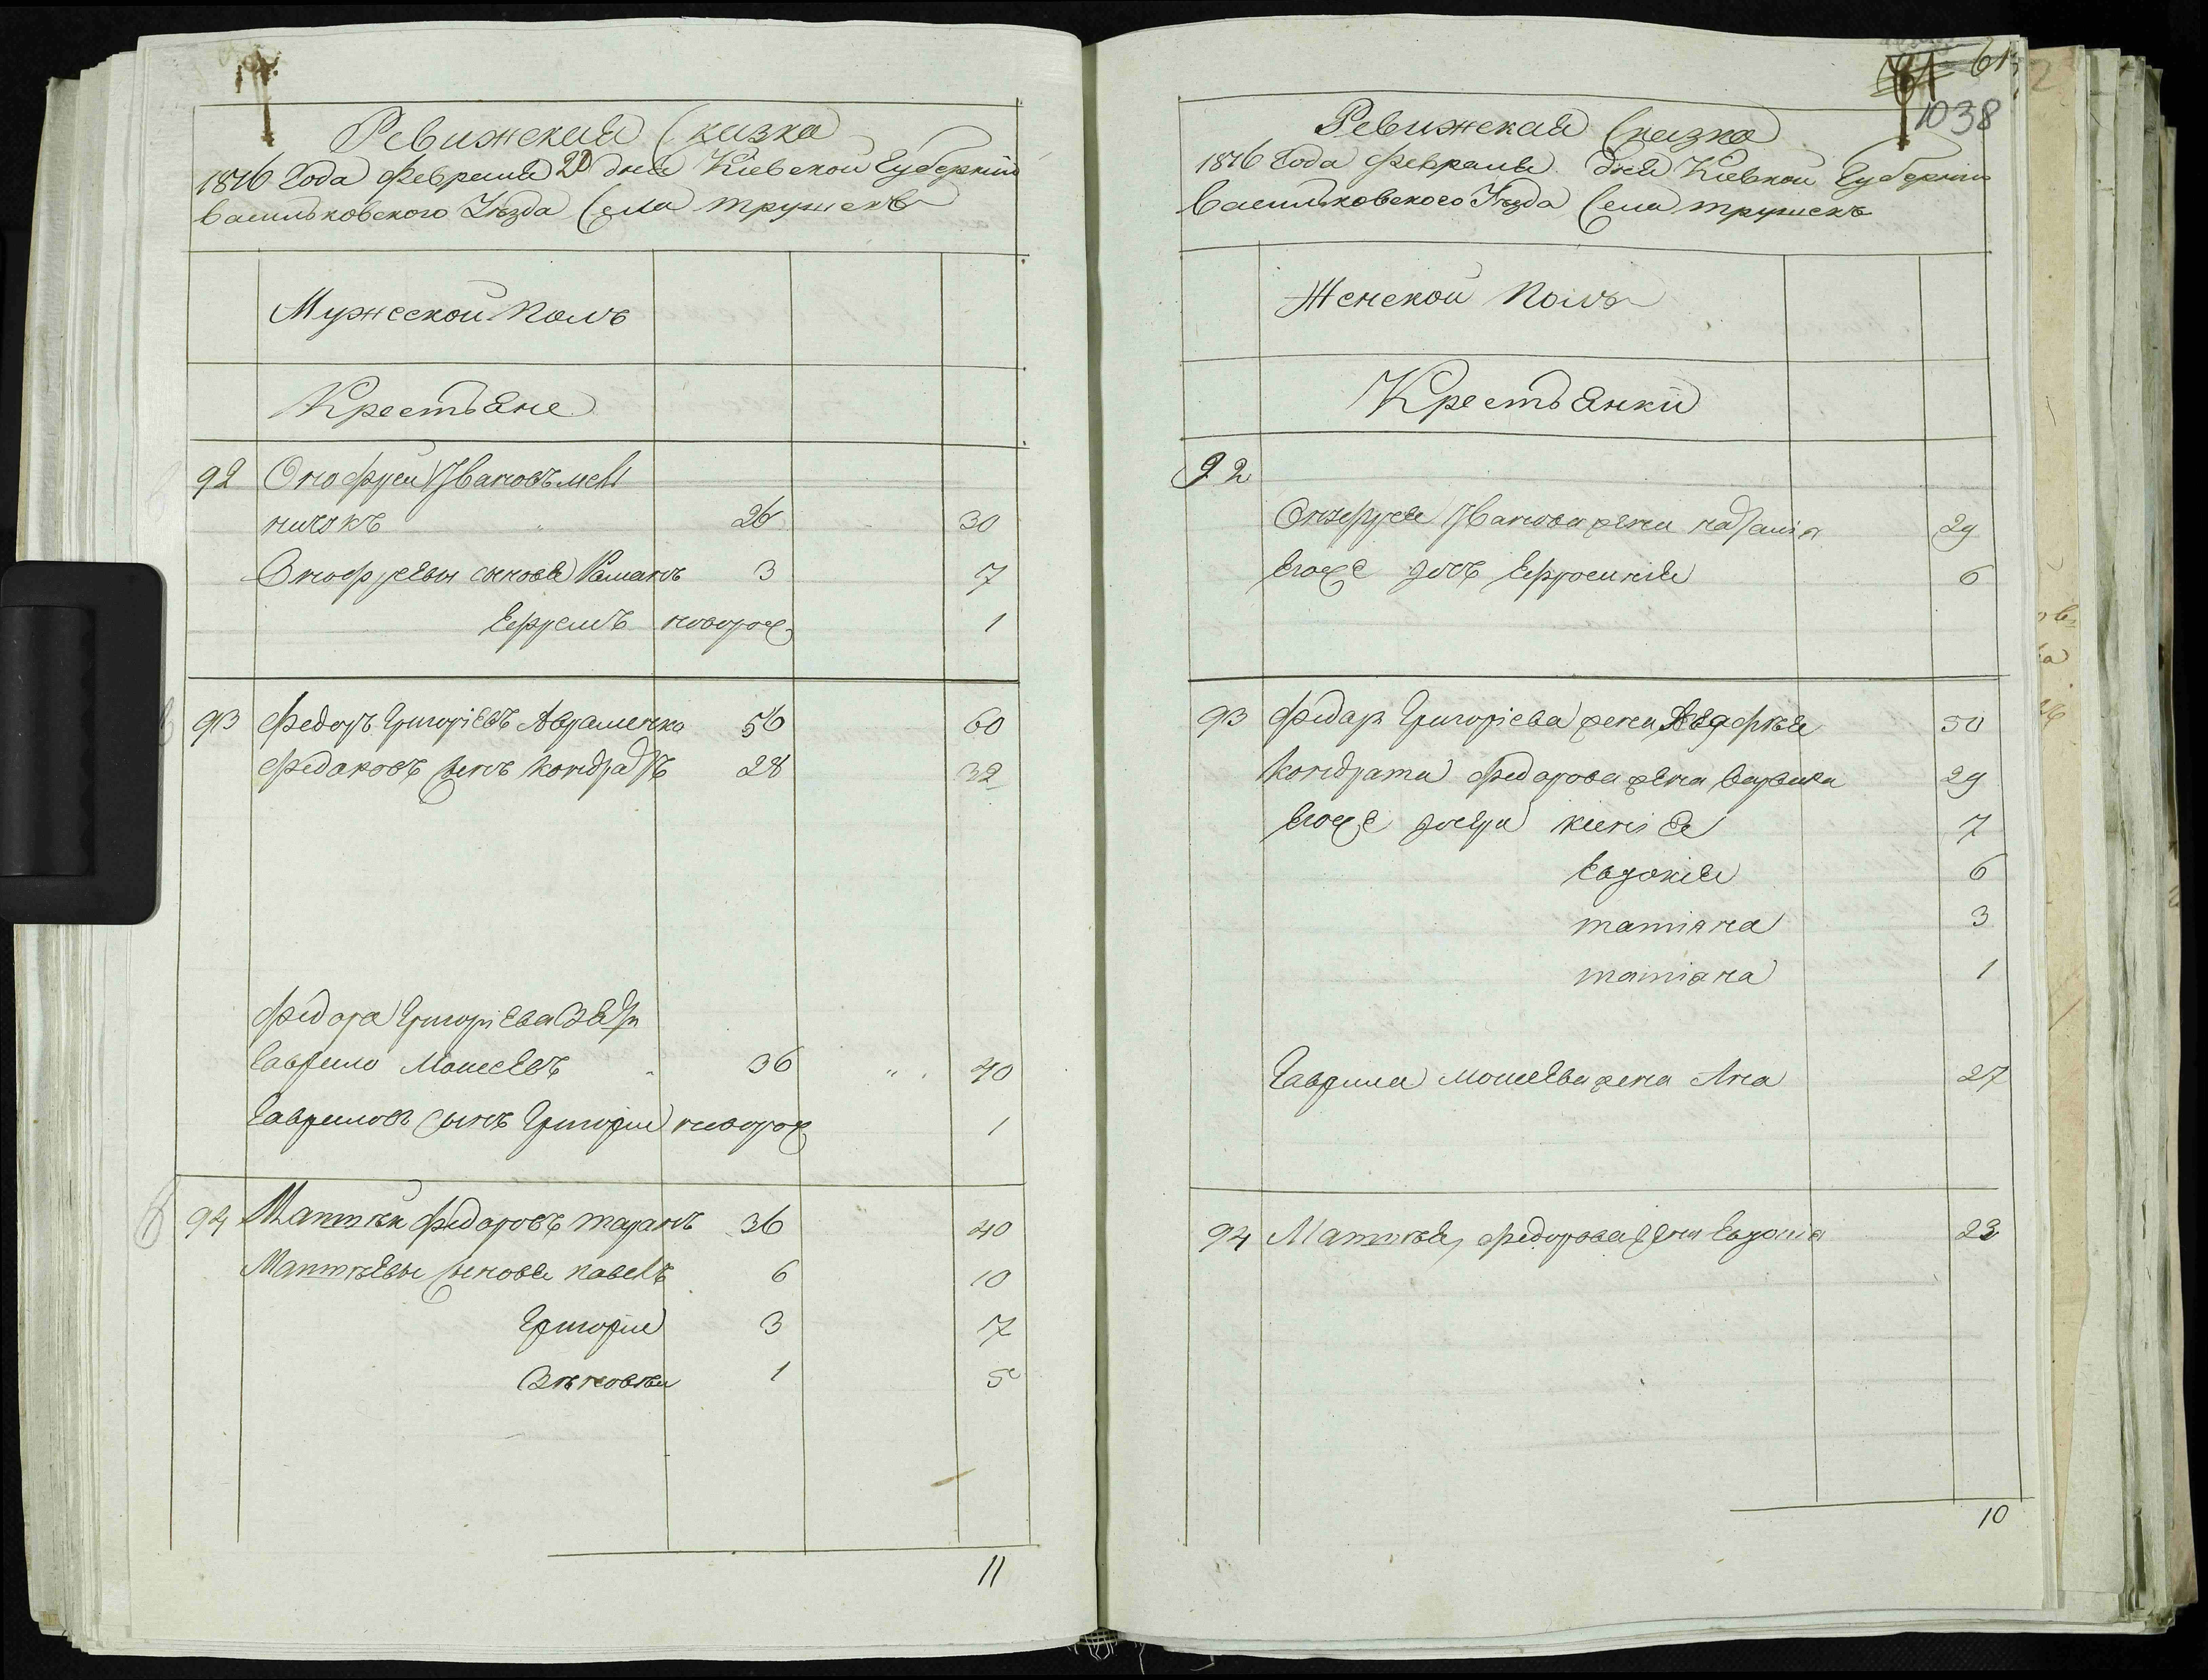 Ревижская Сказка
1816 Года Февраля 20 дня Кіевской Губерніи
Васильковского Уѣзда Села трушекъ
Мужеской Полъ
Крестьяне
92 Онофрей Ивановъ мел
ничукъ 26 30
Онофреевы сыновья Романъ 3 7
Ефремъ новорож 1
93 Федоръ Григоріевъ Авраменко 56 60
Федоровъ сынъ Кондратъ 28 32
Федора Григоріева зять
Гаврило Моисеевъ 36 " 40
Гавриловъ сынъ Григорий новорож 1
94 Маттѣй Федоровъ таранъ 36 40
Маттѣевы сыновья павелъ 6 10
Григорий 3 7
Зѣновѣй 1 5
11
61
1038
Ревижская Сказка
1816 Года Февраля дня Кіевкой Губерніи
Васильковского Уѣзда Села трушекъ
Женской Полъ
Крестьянки
92
Онофрея Иванова жена наталія 29
Егоже дочь Ефросинія 6
93 Федора Григоріева жена 50
Кондрата Федорова жена Варвара 29
Егоже дочери ксенія 7
Евдокия 6
татіяна 3
татіяна 1
Гаврила моисеева жена Ана 27
94 Маттѣя Федорова жена Евдокія 23
10